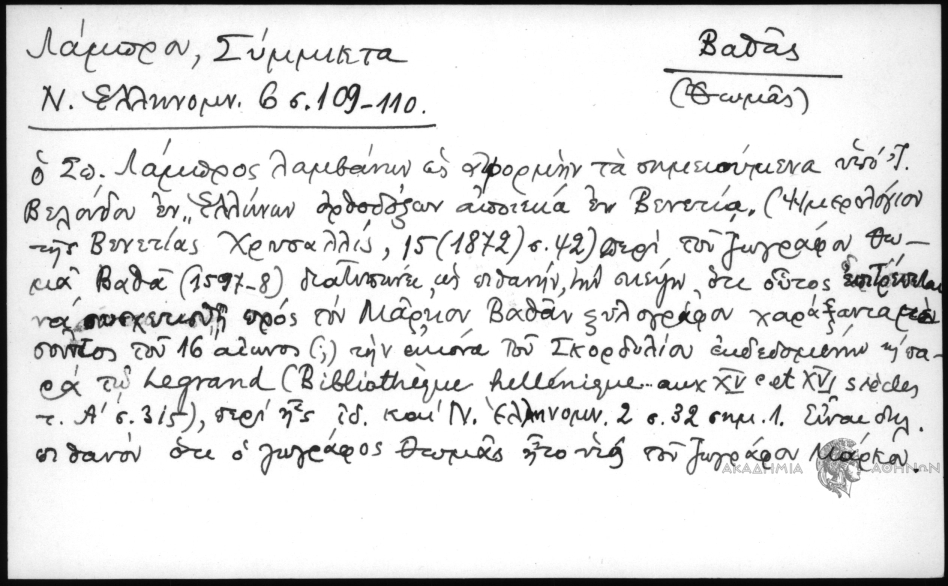 Λάμπρου, Σύμμικτα
Ν. Ἑλληνομν. 6 σ. 109-110.
Βαθᾶς
(Θωμᾶς)
ὁ Σπ. Λάμπρος λαμβάνων ὡς ἀφορμὴν τὰ σημειούμενα ὑπό Ἰ.
Βελούδου ἐν „Ἑλλήνων ὀρθοδόξων ἀποικία ἐν Βενετίᾳ„ (Ἡμερολόγιον
τῆς Βενετίας Χρυσαλλίς, 15 (1872) σ. 42) περὶ τοῦ ζωγράφου Θω-
μᾶ Βαθᾶ (1597-8) διατυπώνει, ὡς πιθανήν, τὴν σκέψιν ὅτι οὗτος ἐπιτρέπεται
νὰ συσχετισθῇ πρὸς τὸν Μᾶρκον Βαθᾶν ξυλογράφον χαράξαντα
τοῦ 16 αἰῶνος (;) τὴν εἰκόνα τοῦ Σκορδυλίου ἐκδεδομένην πα-
ρὰ τῷ Legrand (Bibliothèque hellénique aux XV e et XVI siècles
τ. Α' σ. 315), περὶ ἧς ἰδ. καὶ Ν. Ἑλληνομν. 2 σ. 32 σημ. 1. Εἶναι δηλ.
πιθανὸν ὅτι ὁ ζωγράφος Θωμᾶς ἦτο υἱὸς τοῦ ζωγράφου Μάρκου.
ΑΚΑΔΗΜΙΑ ΑΘΗΝΩΝ